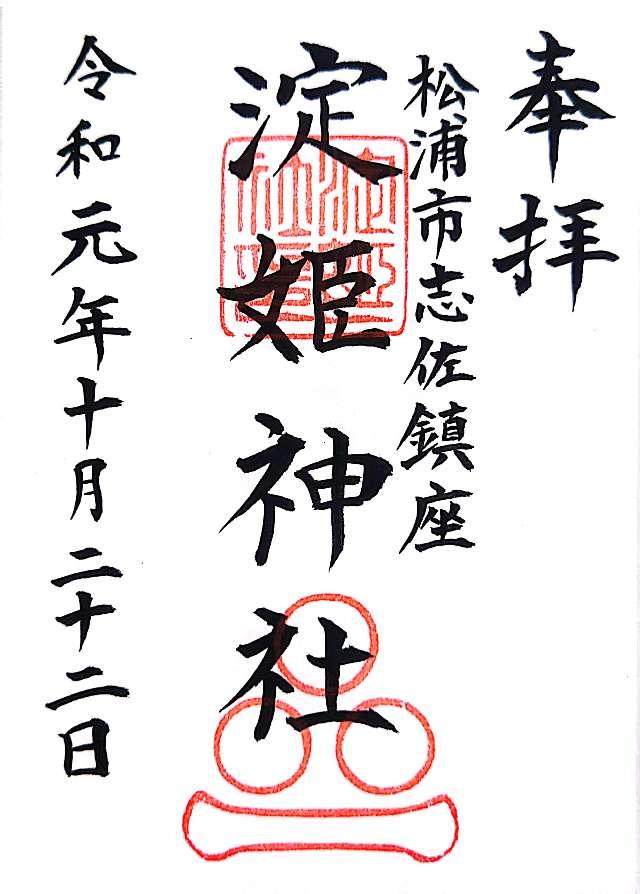 奉拝
松浦市志佐鎮座
淀姫神社
令和元年十月二十二日